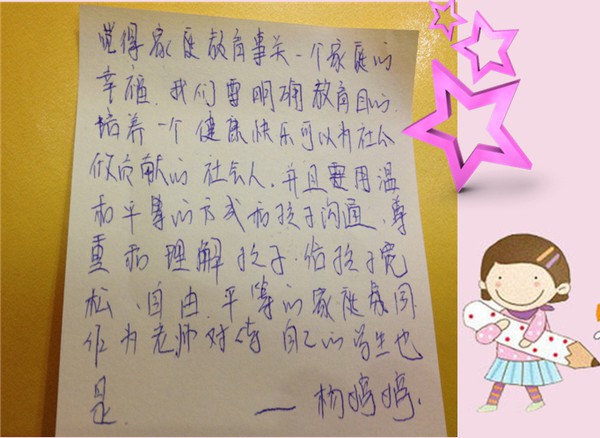 觉得家庭教育事关一个家庭的
幸福.我们要明确教育目的.
培养一个健康快乐可以为社会
做贡献的社会人.并且要用温
和平等的方式和孩子沟通.尊
重和理解孩子.给孩子宽
松、自由、平等的家庭氛围
作为老师对待自己的学生也
是.
——杨婷婷.